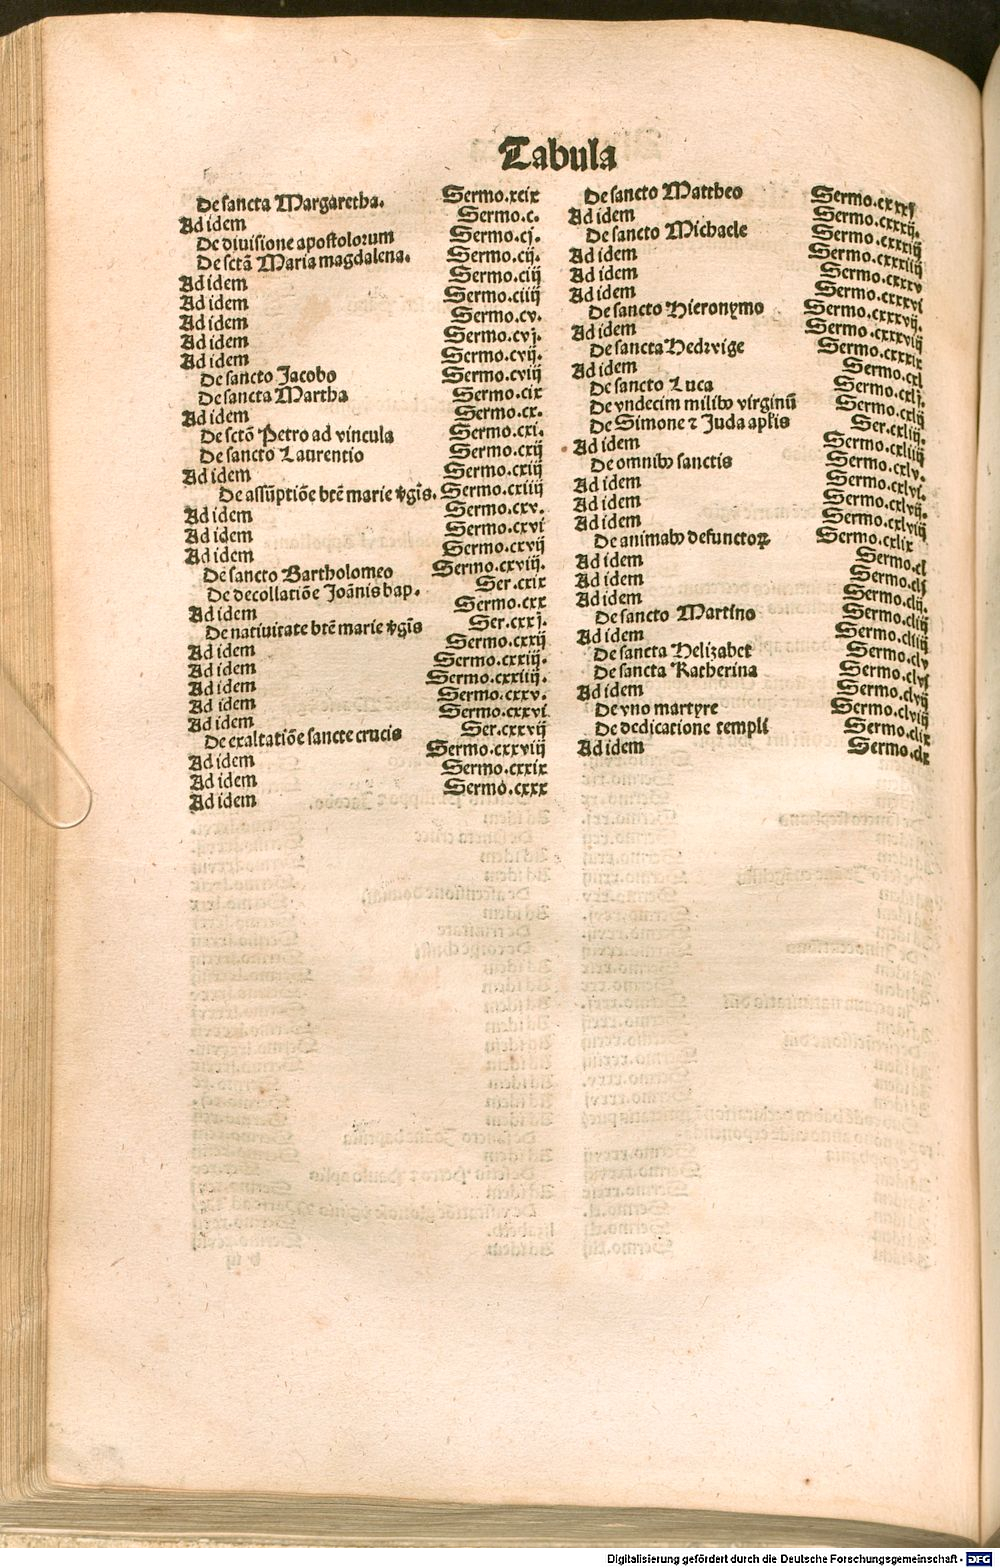 Tabula
De sancta Margaretha. Sermo.xcix
Ad idem Sermo.c.
De diuisione apostolorum Sermo.cj.
De sctã Maria magdalena. Sermo.cij.
Ad idem Sermo.ciij
Ad idem Sermo.ciiij
Ad idem Sermo.cv.
Ad idem Sermo.cvj.
Ad idem Sermo.cvij.
De sancto Jacobo Sermo.cviij
De sancta Martha Sermo.cix
Ad idem Sermo.cx.
De sctõ Petro ad vincula Sermo.cxi.
De sancto Laurentio Sermo.cxij
Ad idem Sermo.cxiij
De assũptiõe btẽ marie ꝟgĩs. Sermo.cxiiij
Ad idem Sermo.cxv.
Ad idem Sermo.cxvi
Ad idem Sermo.cxvij
De sancto Bartholomeo Sermo.cxviij.
De decollatiõe Joãnis bap. Ser.cxix
Ad idem Sermo.cxx
De natiuitate btẽ marie ꝟgĩs Ser.cxxj.
Ad idem Sermo.cxxij
Ad idem Sermo.cxxiij.
Ad idem Sermo.cxxiiij.
Ad idem Sermo.cxxv.
Ad idem Sermo.cxxvi
De exaltatiõe sancte crucis Ser.cxxvij
Ad idem Sermo.cxxviij
Ad idem Sermo.cxxix
Ad idem Sermo.cxxx
De sancto Mattheo Sermo.cxxxj
Ad idem Sermo.cxxxij.
De sancto Michaele Sermo.cxxxiij
Ad idem Sermo.cxxxiiij
Ad idem Sermo.cxxxv
Ad idem Sermo.cxxxvi
De sancto Hieronymo Sermo.cxxxvij.
Ad idem Sermo.cxxxviij
De sancta Hedwige Sermo.cxxxix
Ad idem Sermo.cxl
De sancto Luca Sermo.cxlj.
De vndecim milibꝰ virginũ Sermo.cxlij
De Simone ⁊ Juda aplis Ser.cxliij.
Ad idem Sermo.cxliiij
De omnibꝰ sanctis Sermo.cxlv.
Ad idem Sermo.cxlvi.
Ad idem Sermo.cxlvij.
Ad idem Sermo.cxlviij
De animabꝰ defunctoꝝ Sermo.cxlix
Ad idem Sermo.cl
Ad idem Sermo.clj
Ad idem Sermo.clij.
De sancto Martino Sermo.cliij
Ad idem Sermo.cliiij
De sancta Helizabet Sermo.clv
De sancta Katherina Sermo.clvj
Ad idem Sermo.clvij
De vno martyre Sermo.clviij
De dedicatione templi Sermo.clix
Ad idem Sermo.clx
Digitalisierung gefördert durch die Deutsche Forschungsgemeinschaft - DFG